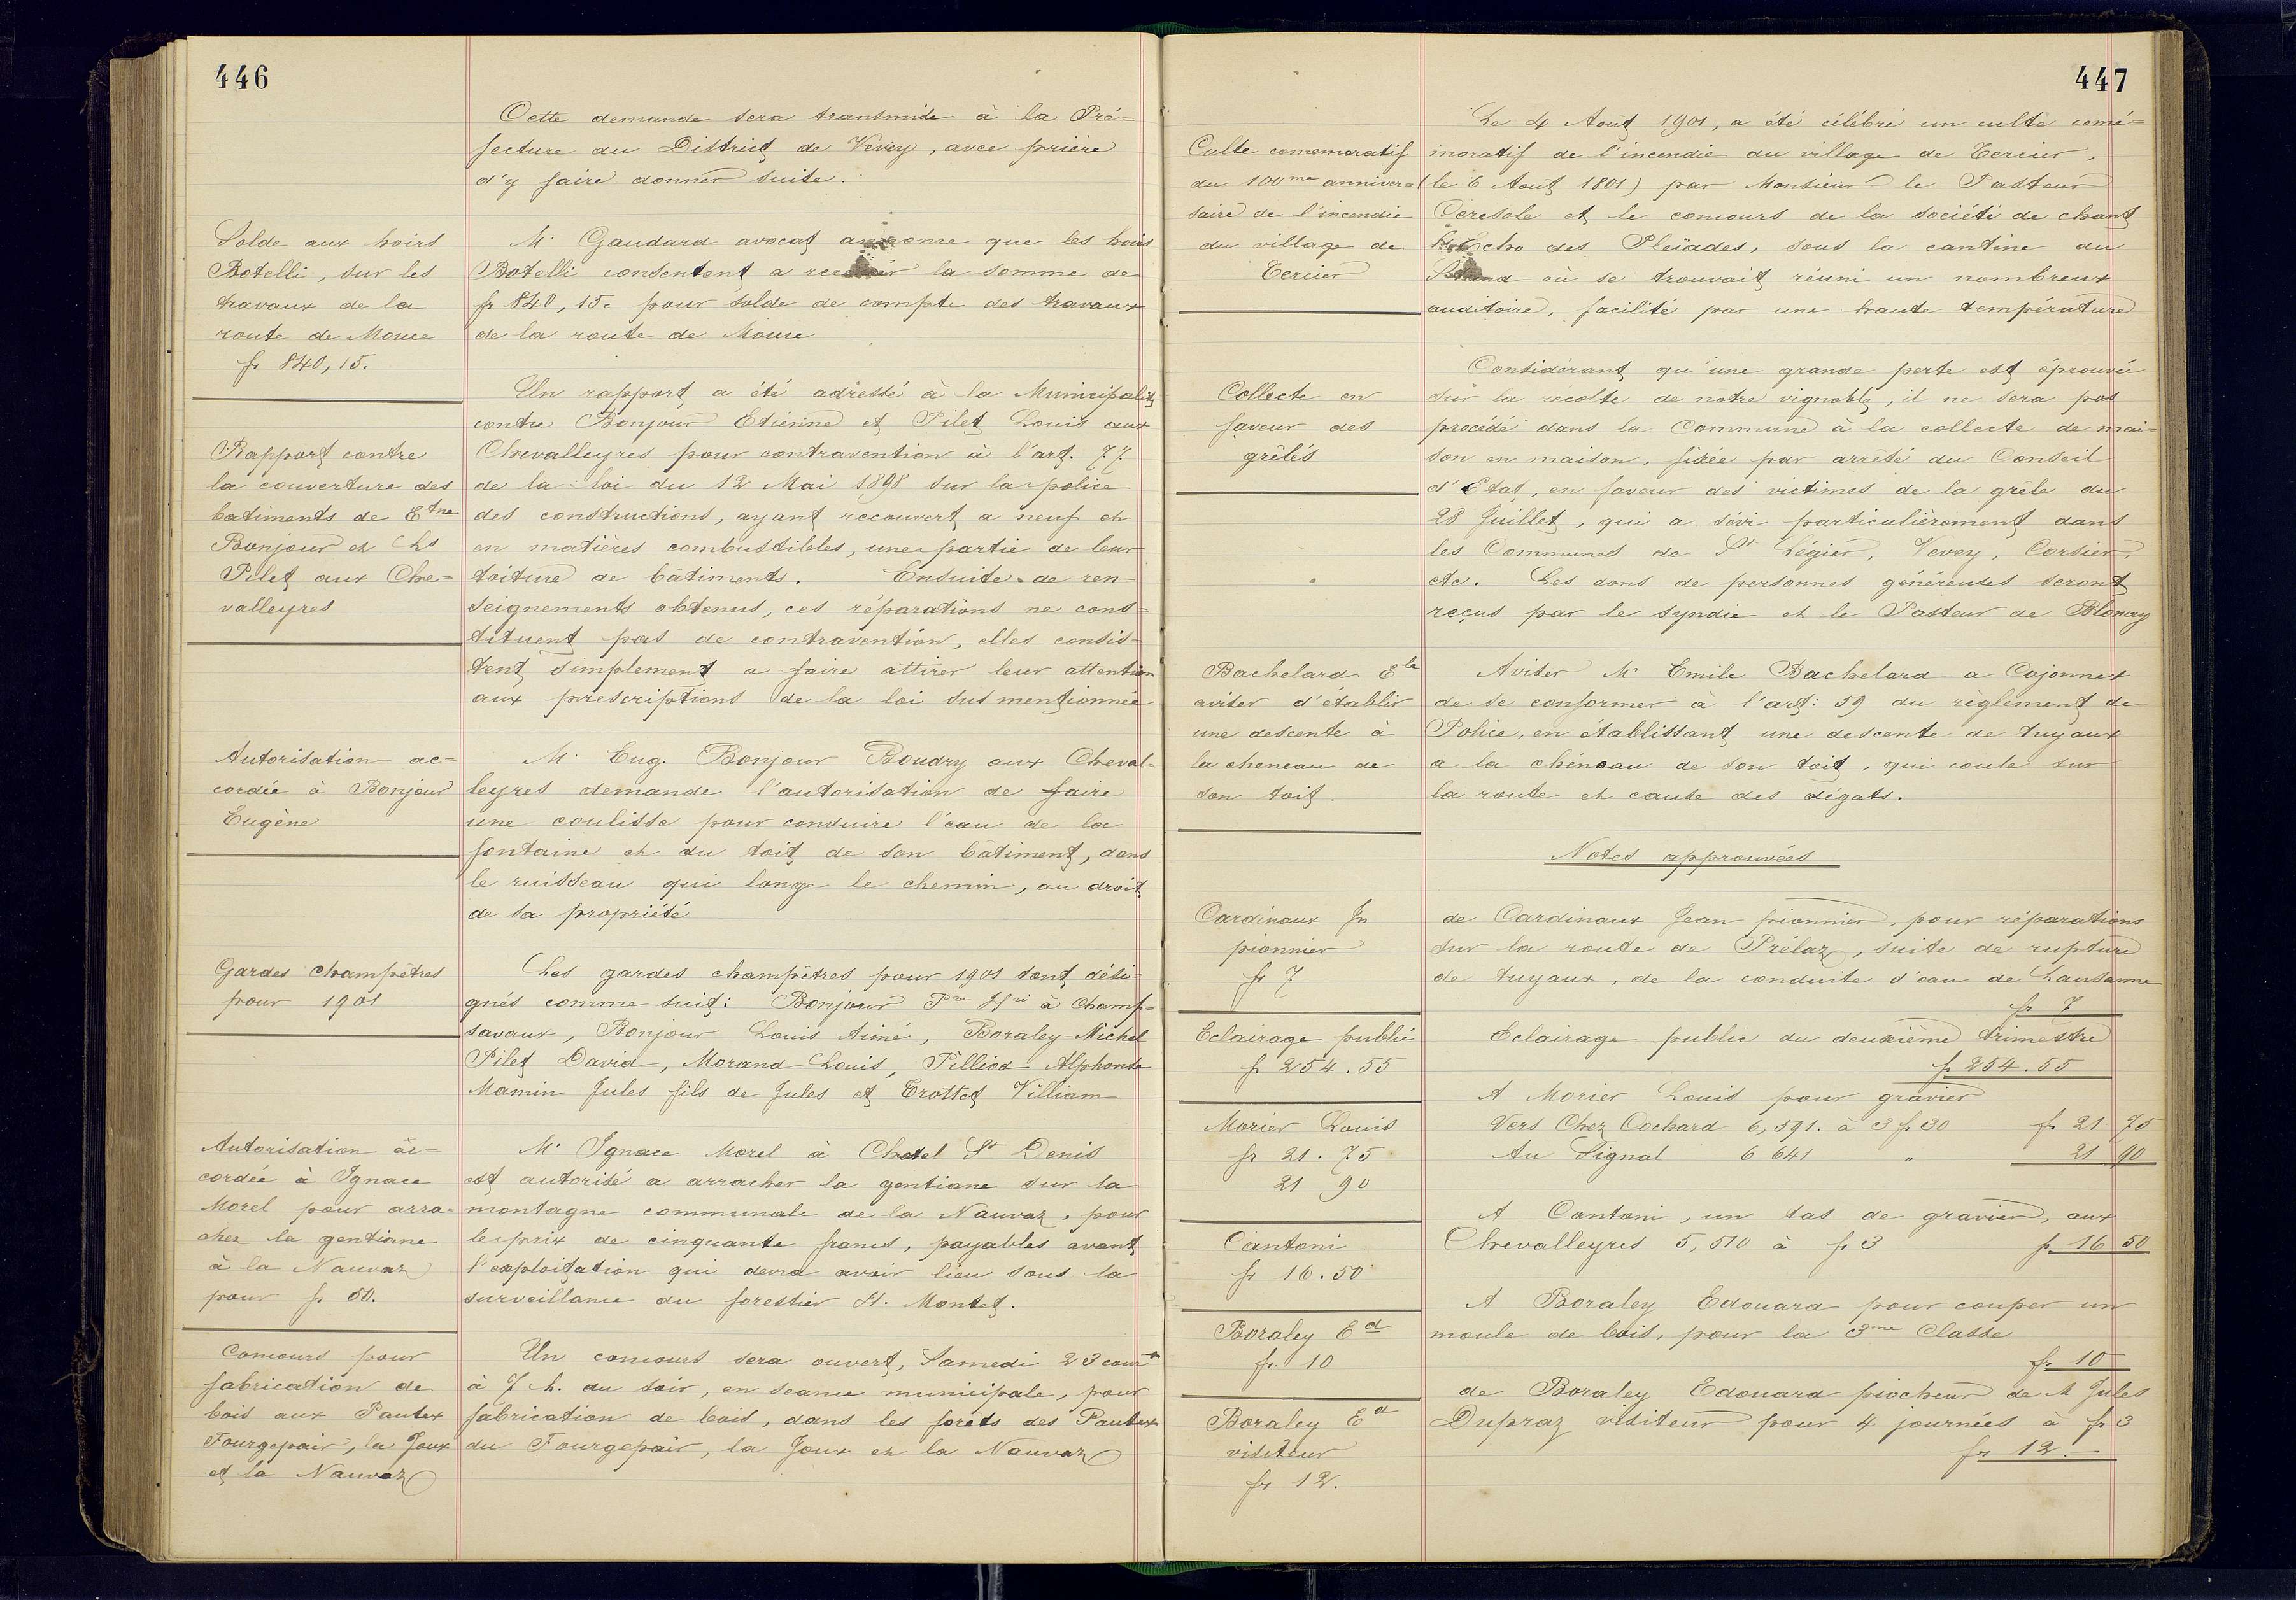 446
Cette demande sera transmise à la Pré=
fecture du District de Vevey, avec prière
d'y faire donner suite.
Solde aux hoirs
Botelli, sur les
travaux de la
route de Mouse
fr 840,15.
Mr Gaudard avocat annonce que les hoirs
Botelli consentent a recevoir la somme de
fr 840,15c pour solde de compte des travaux
de la route de
Rapport contre
la couverture des
batiments de Etne
Bonjour et Ls
Pilet aux Che=
valleyres
Un rapport a été adressé à la Municipalité
contre Bonjour Etienne et Pilet Louis aux
Chevalleyres pour contravention à l'art. 77
de la loi du 12 Mai 1898 sur la police
des constructions, ayant recouvert a neuf et
en matières combustibles, une partie de leur
toiture de bâtiments. Ensuite de ren=
seignements obtenus, ces réparations ne cons=
tituent pas de contravention, elles consis=
tent simplement a faire attirer leur attention
aux prescriptions de la loi sus mentionnée
Autorisation ac=
cordée à Bonjour
Eugène
Mr Eug. Bonjour Boudry aux Cheval=
leyres demande l'autorisation de faire
une coulisse pour conduire l'eau de la
fontaine et du toit de son bâtiment, dans
le ruisseau qui longe le chemin, au droit
de sa propriété
Gardes champêtres
pour 1901
Les gardes champêtres pour 1901 sont dési=
gnés comme suit: Bonjour Pre Hri à Champ=
savaux, Bonjour Louis Aimé, Boraley-Michel
Pilet David, Morand Louis, Pilliod Alphonse
Mamin Jules fils de Jules et Trottet Villiam
Autorisation ac=
cordée à Ignace
Morel pour arra=
cher la gentiane
à la Nauvaz
pour fr 50.
Mr Ignace Morel à Chatel St Denis
est autorisé a arracher la gentiane sur la
montagne communale de la Nauvaz, pour
le prix de cinquante francs, payables avant
l'exploitation qui devra avoir lieu sous la
surveillance du forestier H. Montet.
Concours pour
fabrication de
bois aux Pautex
Fourgepair, la Joux
et la Nauvaz
Un concours sera ouvert, Samedi 23 court
à 7 h. du soir, en seance municipale, pour
fabrication de bois, dans les forets des Pautex
du Fourgepair, la Joux et la Nauvaz
447
Culte comemoratif
du 100me anniver=
saire de l'incendie
du village de
Tercier
Le 4 Aout 1901, a été célébré un culte comé=
moratif de l'incendie du village de Tercier,
(le 6 Août 1801) par Monsieur le Pasteur
Ceresole et le concours de la société de chant
l'Echo des Pleïades, sous la cantine du
Stand où se trouvait réuni un nombreux
auditoire, facilité par une haute température
Collecte en
faveur des
grêlés
Considérant qu'une grande perte est éprouvée
sur la récolte de notre vignoble, il ne sera pas
procédé dans la Commune à la collecte de mai=
son en maison, fixée par arrêté du Conseil
d'Etat, en faveur des victimes de la grêle du
28 Juillet, qui a sévi particulièrement dans
les Communes de St Légier, Vevey, Corsier,
etc. Les dons de personnes généreuses seront
reçus par le syndic et le Pasteur de Blonay
Bachelard Ele
aviser d'établir
une descente à
la cheneau de
son toit.
Aviser Mr Emile Bachelard a Cojonnex
de se conformer à l'art: 59 du règlement de
Police, en établissant une descente de tuyaux
a la chéneau de son toit, qui coule sur
la route et cause des dégats.
Notes approuvées
Cardinaux Jn
pionnier
fr 7
de Cardinaux Jean pionnier, pour réparations
sur la route de Prélaz, suite de rupture
de tuyaux, de la conduite d'eau de Lausanne
fr 7
Eclairage public
fr 254.55
Eclairage public du deuxième trimestre
fr 254.55
Morier Louis
fr 21.75
21 90
A Morier Louis pour gravier
Vers Chez Cochard 6,591. à 3 fr 30 fr 21 75
Au Signal 6 641 " 21 90
Cantoni
fr 16.50
A Cantoni, un tas de gravier, aux
Chevalleyres 5,510 à fr 3 fr 16 50
Boraley Ed
fr. 10
A Boraley Edouard pour couper un
moule de bois, pour la 3me Classe
fr 10
Boraley Ed
visiteur
fr 12.
de Boraley Edouard piocheur de M Jules
Dupraz visiteur pour 4 journées à fr 3
fr 12.-